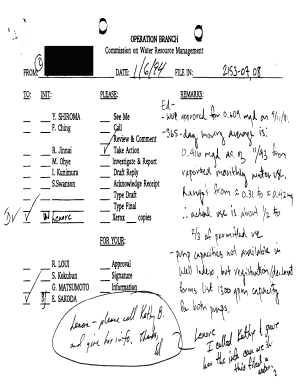 OPERATION BRANCH
Commission on Water Resource Management
FROM: DATE: 1/6/94 FILE IN: 2153-07,08
TO: INIT: PLEASE: REMARKS:
Y. SHIROMA See Me
F. Ching Call
Review & Comment
R. Jinnai Take Action
M. Ohye Investigate & Report
I. Kunimura Draft Reply
S. Swanson Acknowledge Receipt
Type Draft
Type Final
Lenore Xerox copies
FOR YOUR:
R. LOUI Approval
S. Kokubun Signature
G. MATSUMOTO Information
E. SAKODA
Ed-
- WUP approved for 0.609 mgd on 9/11/
- 365-day moving average is:
0.410 mgd as of 11/93 from
reported monthly water use.
Range's from ≈ 0.31 to ≈ 0.42 mgd
∴ actual use is about 1/2 to
2/3 of permitted use
- pump capacities not available in
Well Index, but registration/declarat.
forms list 1300 gpm capacity
for both pumps.
Lenore - please call Kathy B.
and give her info. Thanks
Ed
Lenore
I called Kathy & gave
her the info